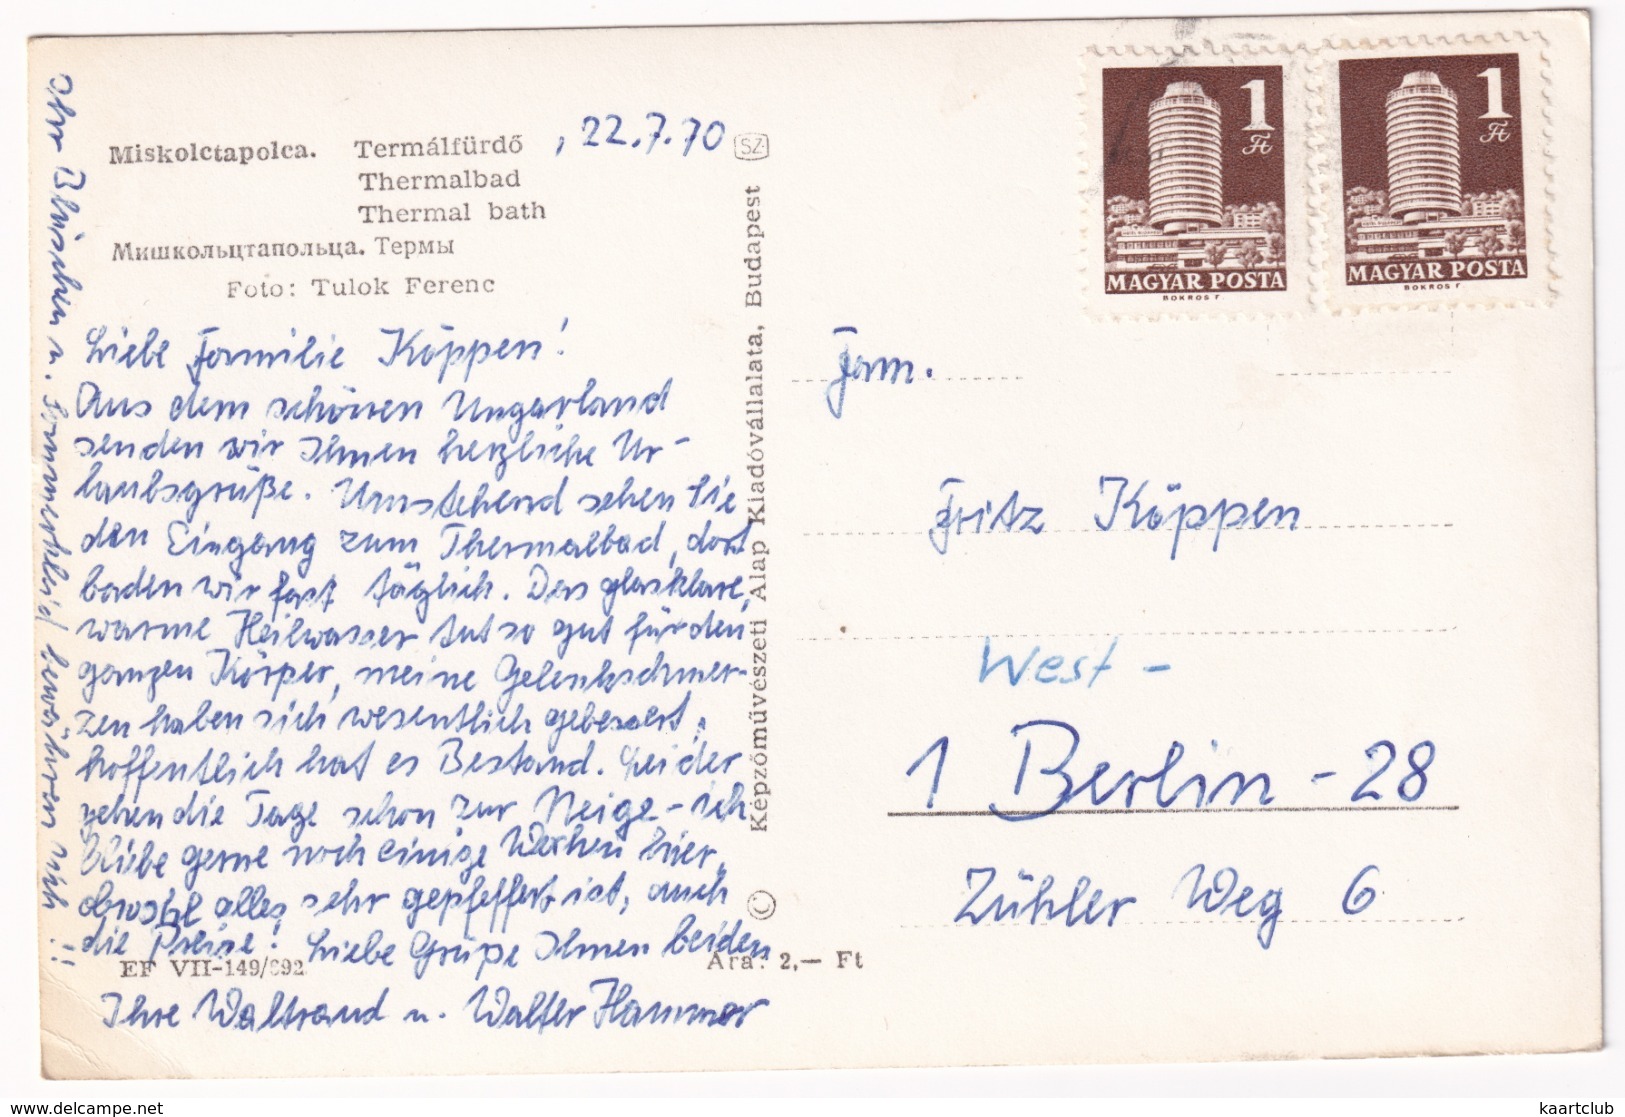 Miskolctapolca. Termálfürdő , 22.7.70
Thermalbad
Thermal bath
Мишкольцтапольца. Термы
Foto: Tulok Ferenc
Liebe Familie Köppen!
Aus dem schönen Ungarland
senden wir Ihnen herzliche Ur-
laubsgrüße. Umstehend sehen Sie
den Eingang zum Thermalbad, dort
baden wir fast täglich. Das glasklare,
warme Heilwasser tut so gut für den
ganzen Körper, meine Gelenkschmer-
zen haben sich wesentlich gebessert,
hoffentlich hat es Bestand. Leider
gehen die Tage schon zur Neige - ich
bliebe gerne noch einige Wochen hier,
obwohl alles sehr gepfeffert ist, auch
die Preise! Liebe Grüße Ihnen beiden
Ihre Waltraud u. Walter Hammer
Ihr Blüschen u. Sommerkleid bewähren sich!!
EF VII-149/692
Ára: 2,— Ft
© Képzőművészeti Alap Kiadóvállalata, Budapest
SZ
1
Ft
MAGYAR POSTA
BOKROS F.
1
Ft
MAGYAR POSTA
BOKROS F.
Fam.
Fritz Köppen
West -
1 Berlin - 28
Zühler Weg 6
delcampe.net
kaartclub